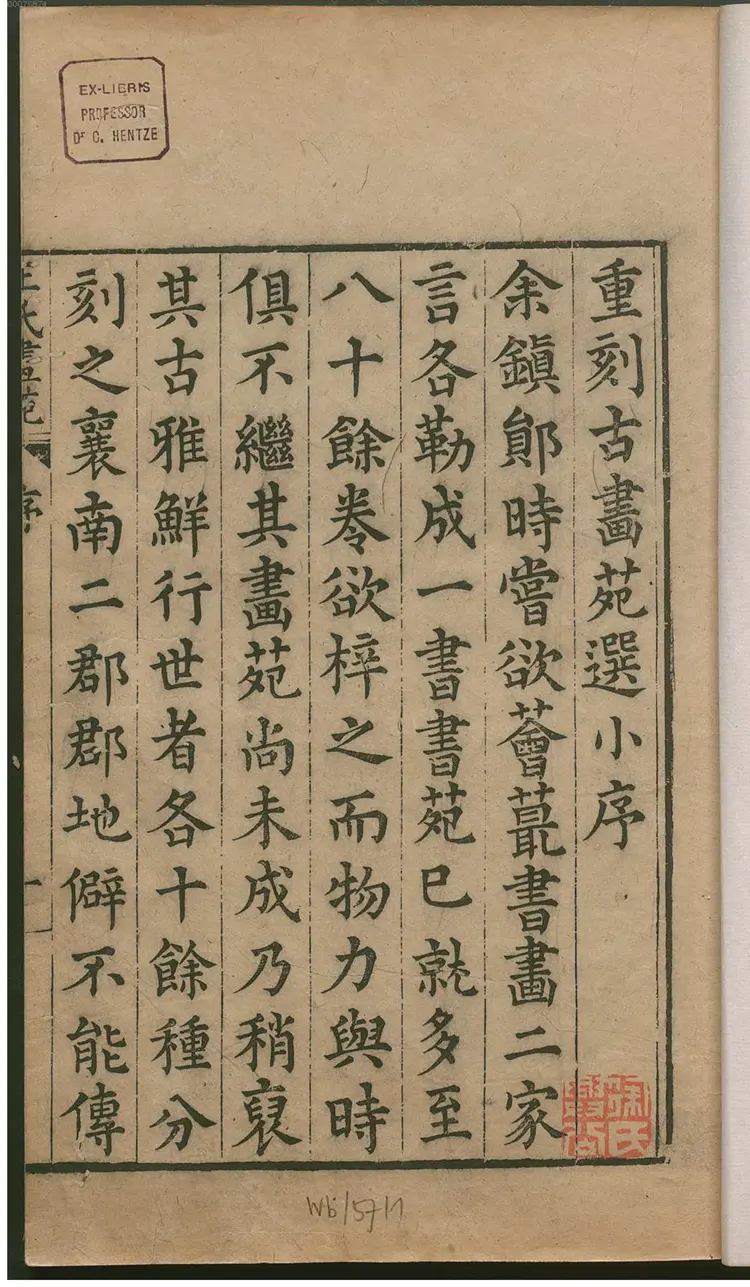 00076874
EX-LIBRIS
PROFESSOR
Dr C. HENTZE
重刻古畫苑選小序
余鎮鄖時嘗欲薈蕞書畫二家
言各勒成一書書苑已就多至
八十餘卷欲梓之而物力與時
俱不繼其畫苑尚未成乃稍裒
其古雅鮮行世者各十餘種分
刻之襄南二郡郡地僻不能傳
王氏畫苑
序
一
Wb/57/1